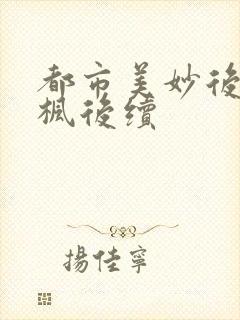 都市美妙後
楓後續
揚佳寧